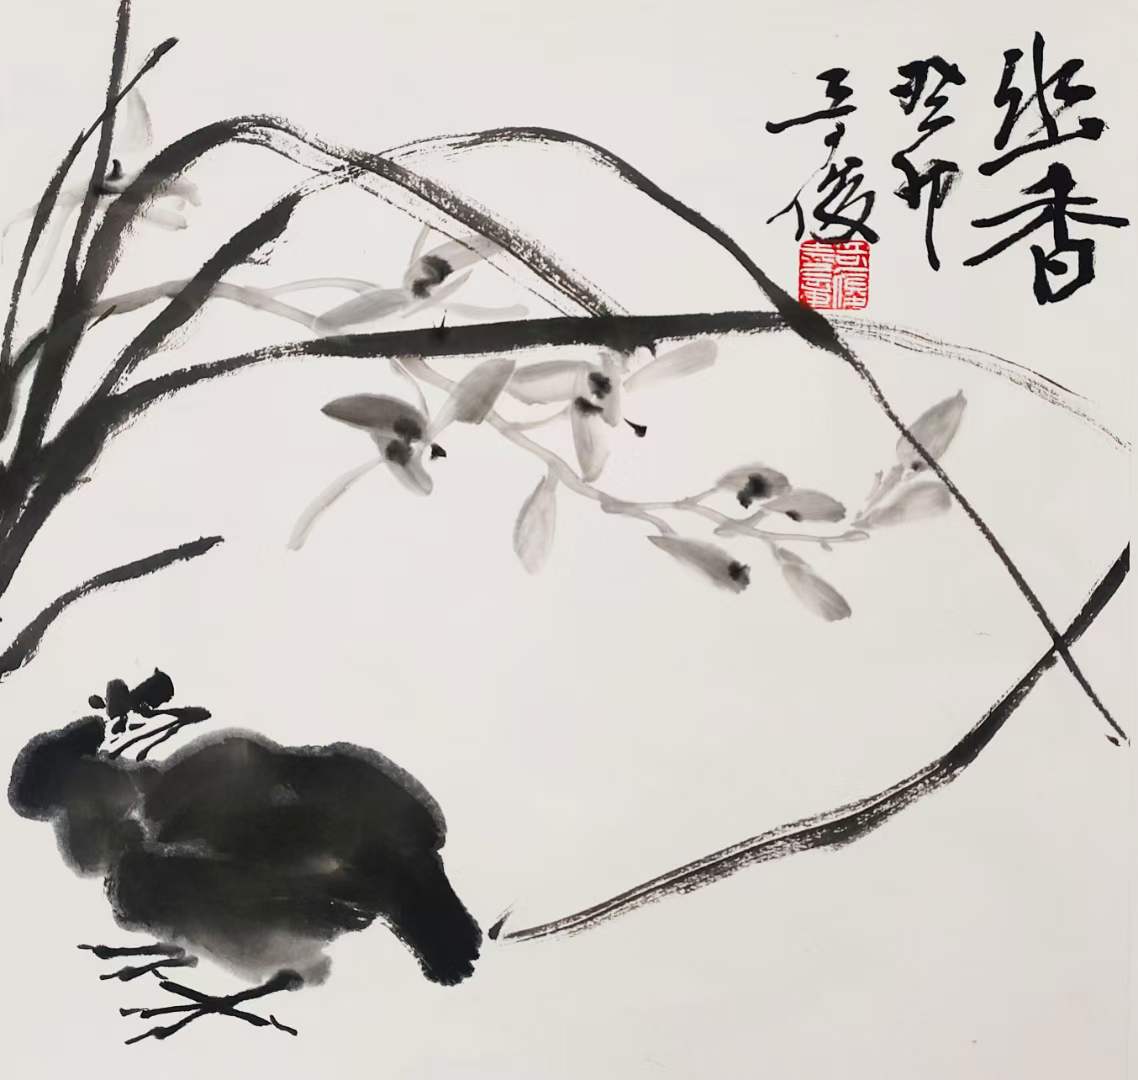 幽香
癸卯
俊